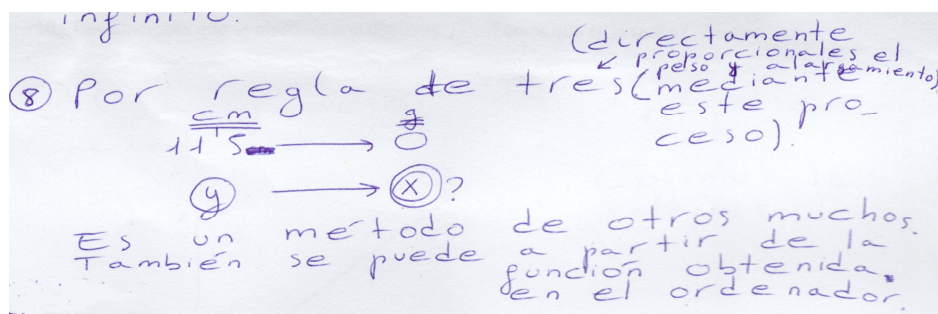 infinito.
(directamente
proporcionales el
peso y alargamiento)
⑧ Por regla de tres (mediante
este pro-
ceso).
cm g
11'5 → 0
y → x ?
Es un método de otros muchos.
También se puede a partir de la
función obtenida
en el ordenador.